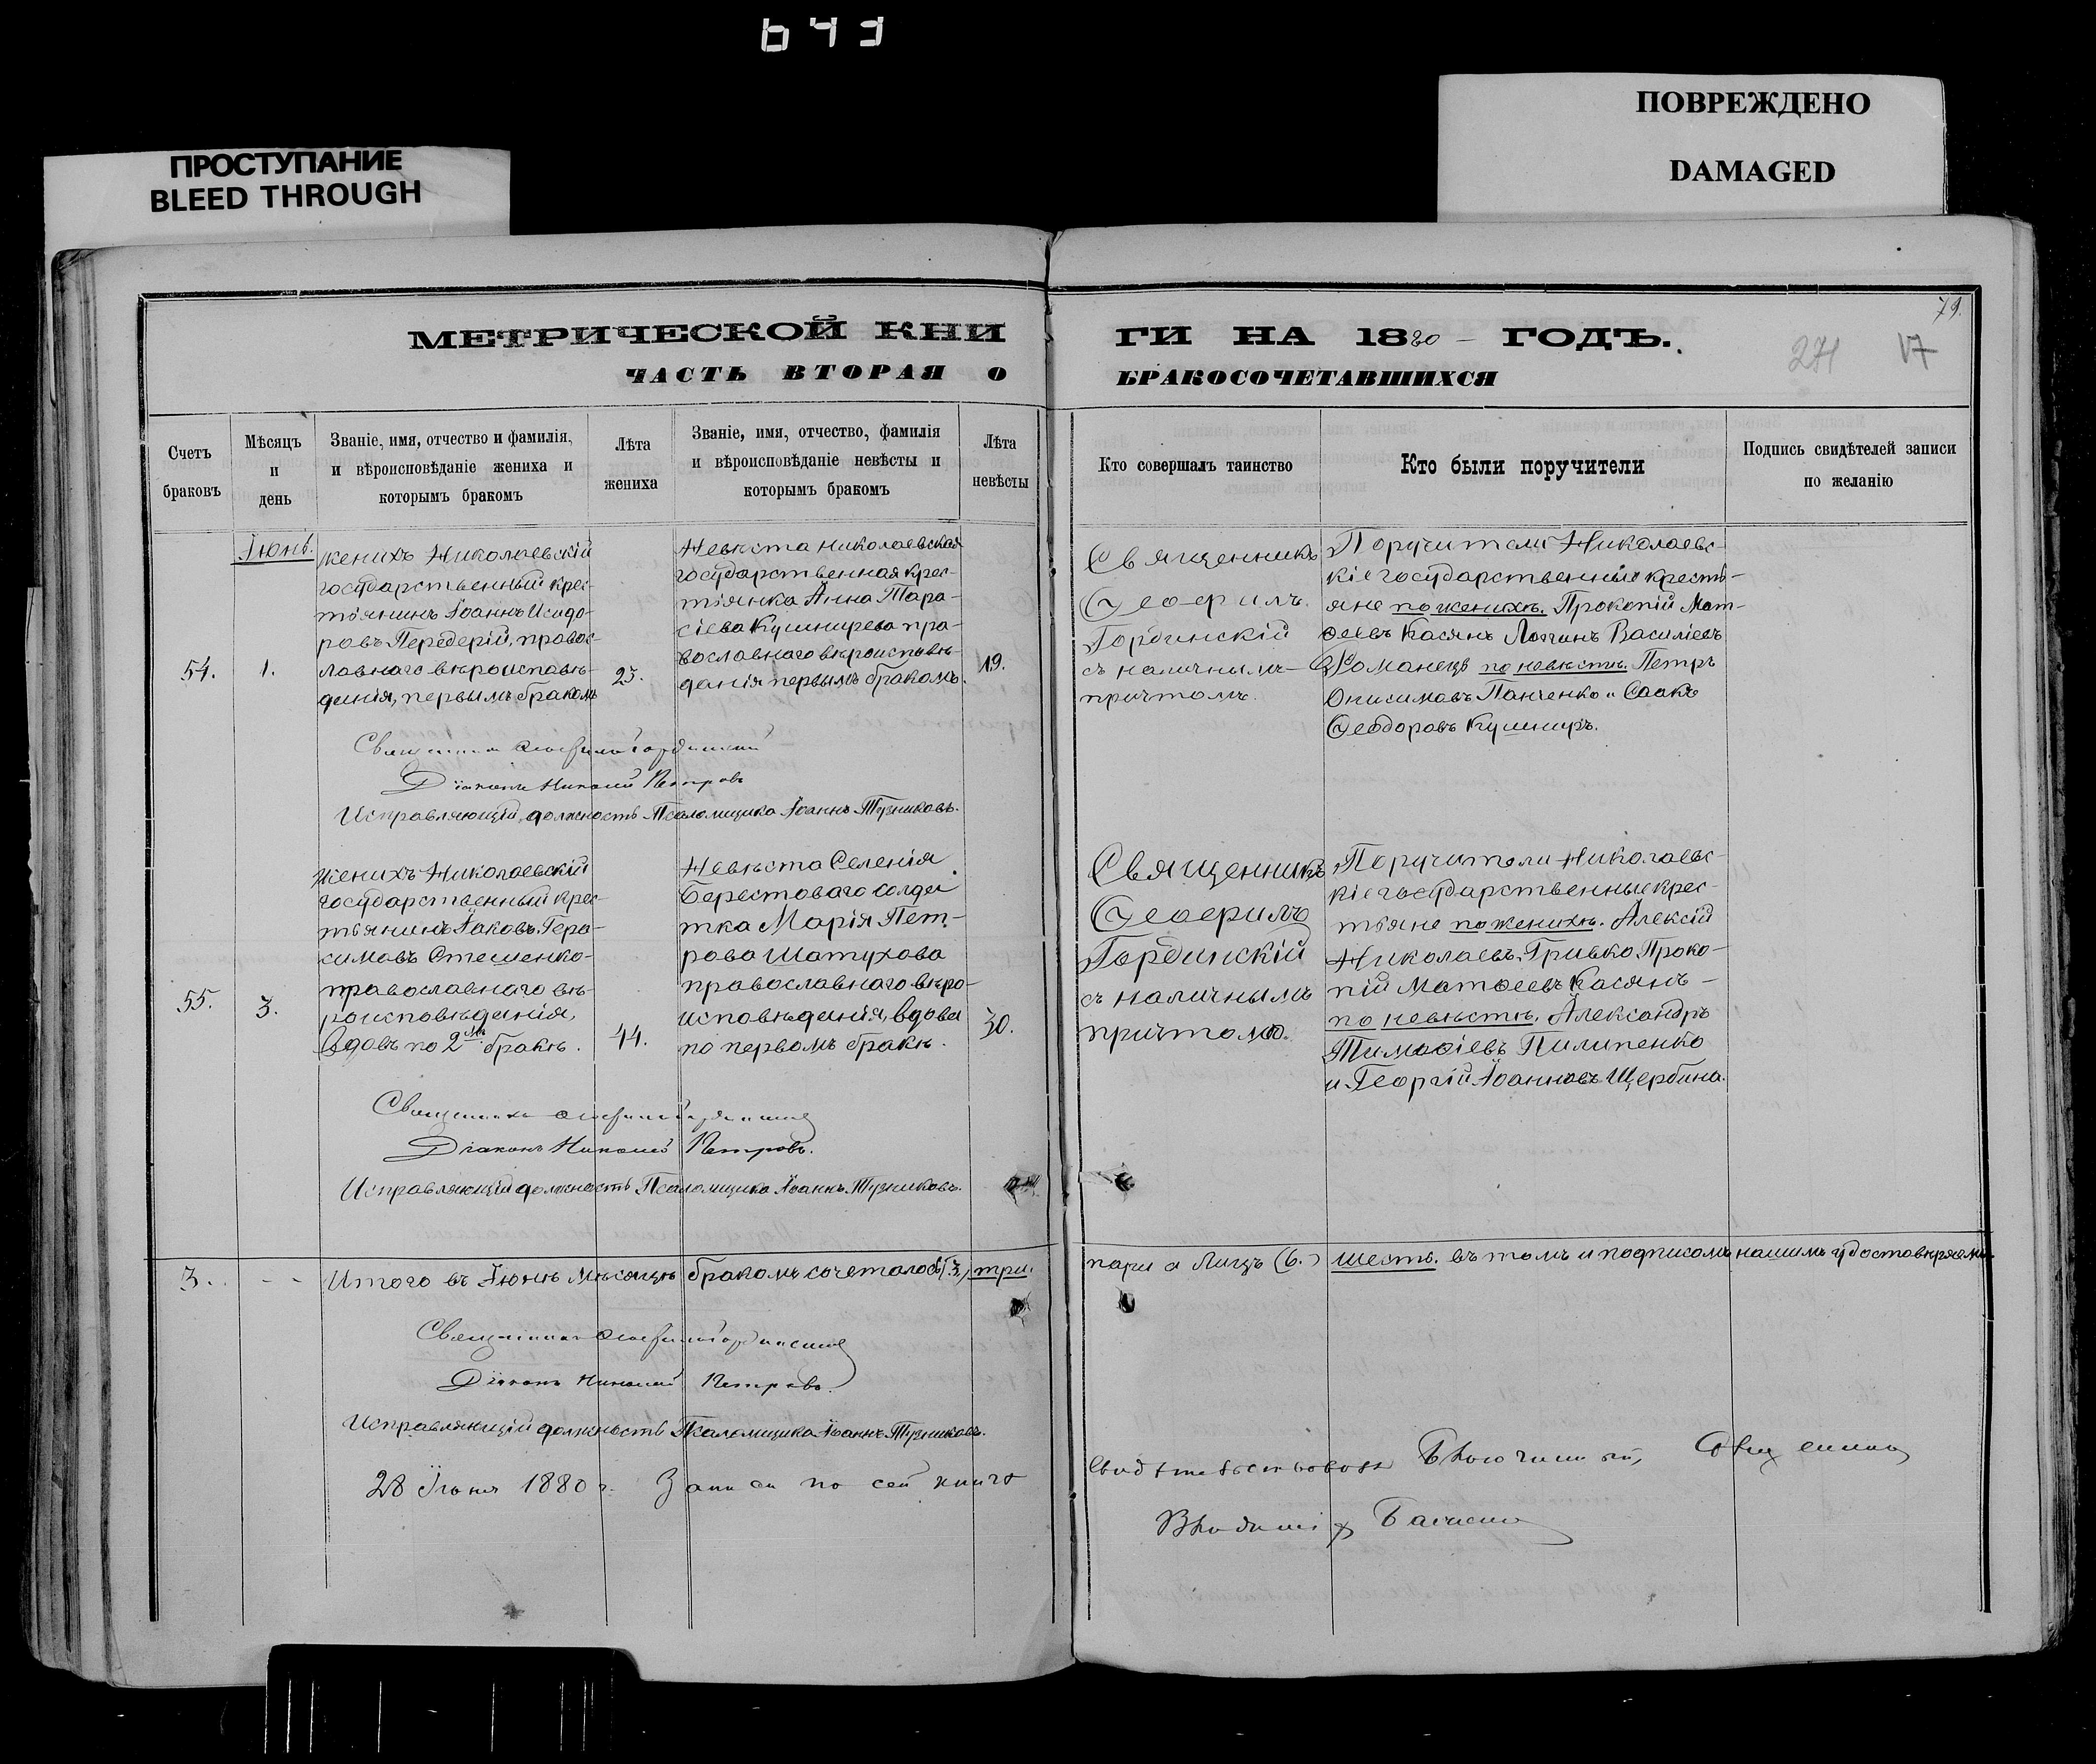 643
ПРОСТУПАНИЕ
BLEED THROUGH
ПОВРЕЖДЕНО
DAMAGED
79.
МЕТРИЧЕСКОЙ КНИ
ГИ НА 1880 ГОДЪ.
271 17
ЧАСТЬ ВТОРАЯ О
БРАКОСОЧЕТАВШИХСЯ
Счетъ
браковъ
Мѣсяцъ
и
день
Званіе, имя, отчество и фамилія,
и вѣроисповѣданіе жениха и
которымъ бракомъ
Лѣта
жениха
Званіе, имя, отчество, фамилія
и вѣроисповѣданіе невѣсты и
которымъ бракомъ
Лѣта
невѣсты
Кто совершалъ таинство
Кто были поручители
Подпись свидѣтелей записи
по желанію
54.
Іюнь.
1.
женихъ Николаевскій
государственный крес-
тьянинъ Іоаннъ Исидо-
ровъ Передерій, правос-
лавнаго вѣроисповѣ-
данія, первымъ бракомъ
23.
Невѣста николаевская
государственная крес-
тьянка Анна Тара-
сіева Кушнирева пра-
вославнаго вѣроисповѣ-
данія первымъ бракомъ.
19.
Священникъ
Ѳеофилъ
Гординскій
съ наличнымъ
причтомъ.
Поручители Николаевс-
кіе государственные кресть-
яне по женихѣ. Прокопій Мат-
ѳеевъ Касянъ Логинъ Василіевъ
Романецъ по невѣстѣ. Петръ
Онисимовъ Панченко и Саакъ
Ѳеодоровъ Кушниръ.
Священникъ Ѳеофилъ Гординскій
Діаконъ Николай Петровъ
Исправляющій должность Псаломщика Іоаннъ Тузниковъ.
55.
3.
женихъ Николаевскій
государственный крес-
тьянинъ Іаковъ Гера-
симовъ Стешенко
православнаго вѣ-
роисповѣданія,
вдовъ по 2мъ бракѣ.
44.
Невѣста Селенія
Берестоваго солда-
тка Марія Пет-
рова Шатухова
православнаго вѣро-
исповѣданія, вдова
по первомъ бракѣ.
30.
Священникъ
Ѳеофилъ
Гординскій
съ наличнымъ
причтомъ.
Поручители Николаевс-
кіе государственные крес-
тьяне по женихѣ. Алексій
Николаевъ Гривко Проко-
пій Матѳеевъ Касянъ-
по невѣстѣ. Александръ
Тимоѳіевъ Пилипенко
и Георгій Іоанновъ Щербина.
Священникъ Ѳеофилъ Гординскій
Діаконъ Николай Петровъ.
Исправляющій должность Псаломщика Іоаннъ Тузниковъ.
3. - - Итого въ Іюнѣ мѣсяцѣ бракомъ сочеталось (3.) три. пари а лицъ (6.) шесть. въ томъ и подписомъ нашимъ удостовѣряемъ.
Священникъ Ѳеофилъ Гординскій
Діаконъ Николай Петровъ.
Исправляющій должность Псаломщика Іоаннъ Тузниковъ.
28 Іюня 1880 г. Записи по сей книгѣ
свидѣтельствовалъ Благочинный, Священникъ
Владиміръ